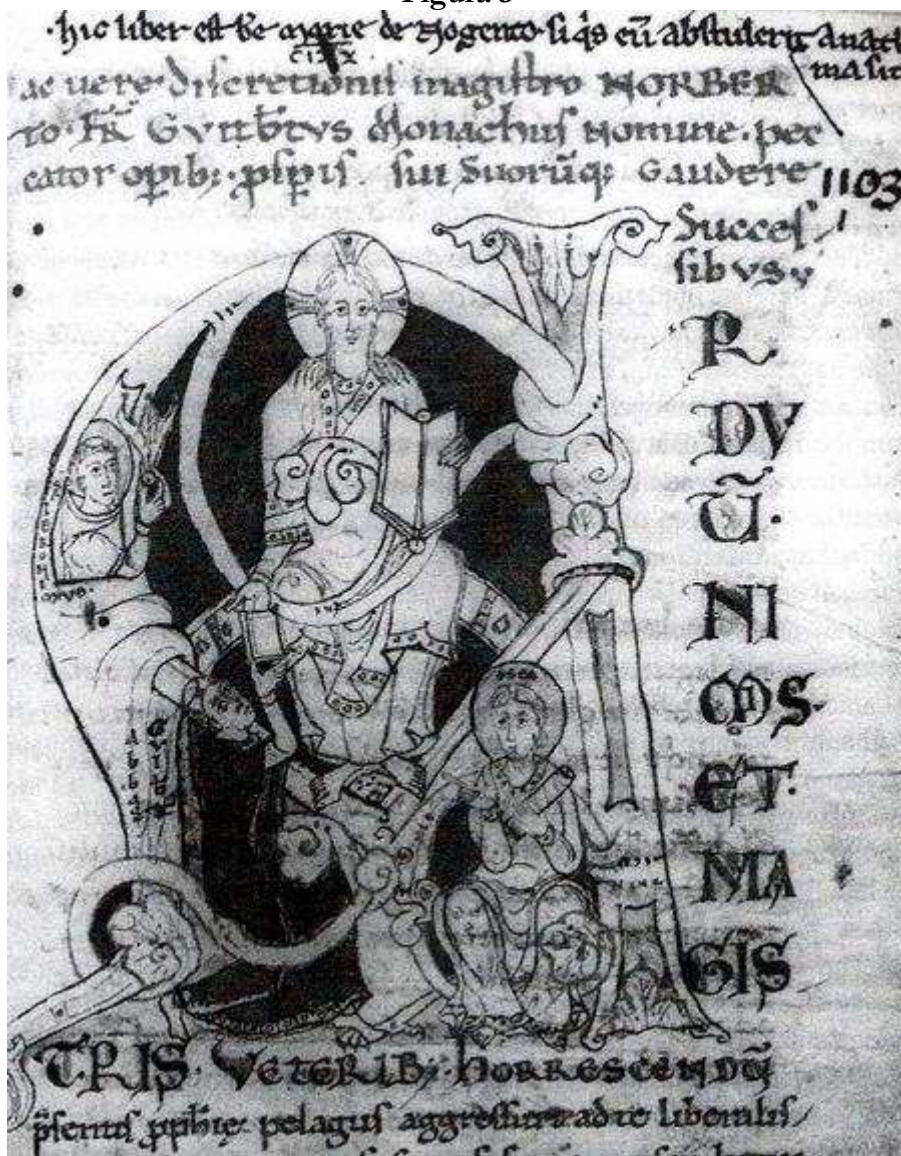 Figura
·hic liber est be marie de Nogento· si q̄s eū abstulerit anat
ma sit
ac uere discretionis magistro NORBER
to· Fr̄ Guitb̄tvs Monachus nomine· pec
cator opib: ꝓspis· sui Suorūq: Gaudere
1103
Succes
sibvs
A
R
DV
Ū·
NI
MIS·
ET·
MA
GIS
TRIS· VETERIB: HORRESCENDŪ
p̄sentis ꝓph̄ie pelagus ad te liberalis